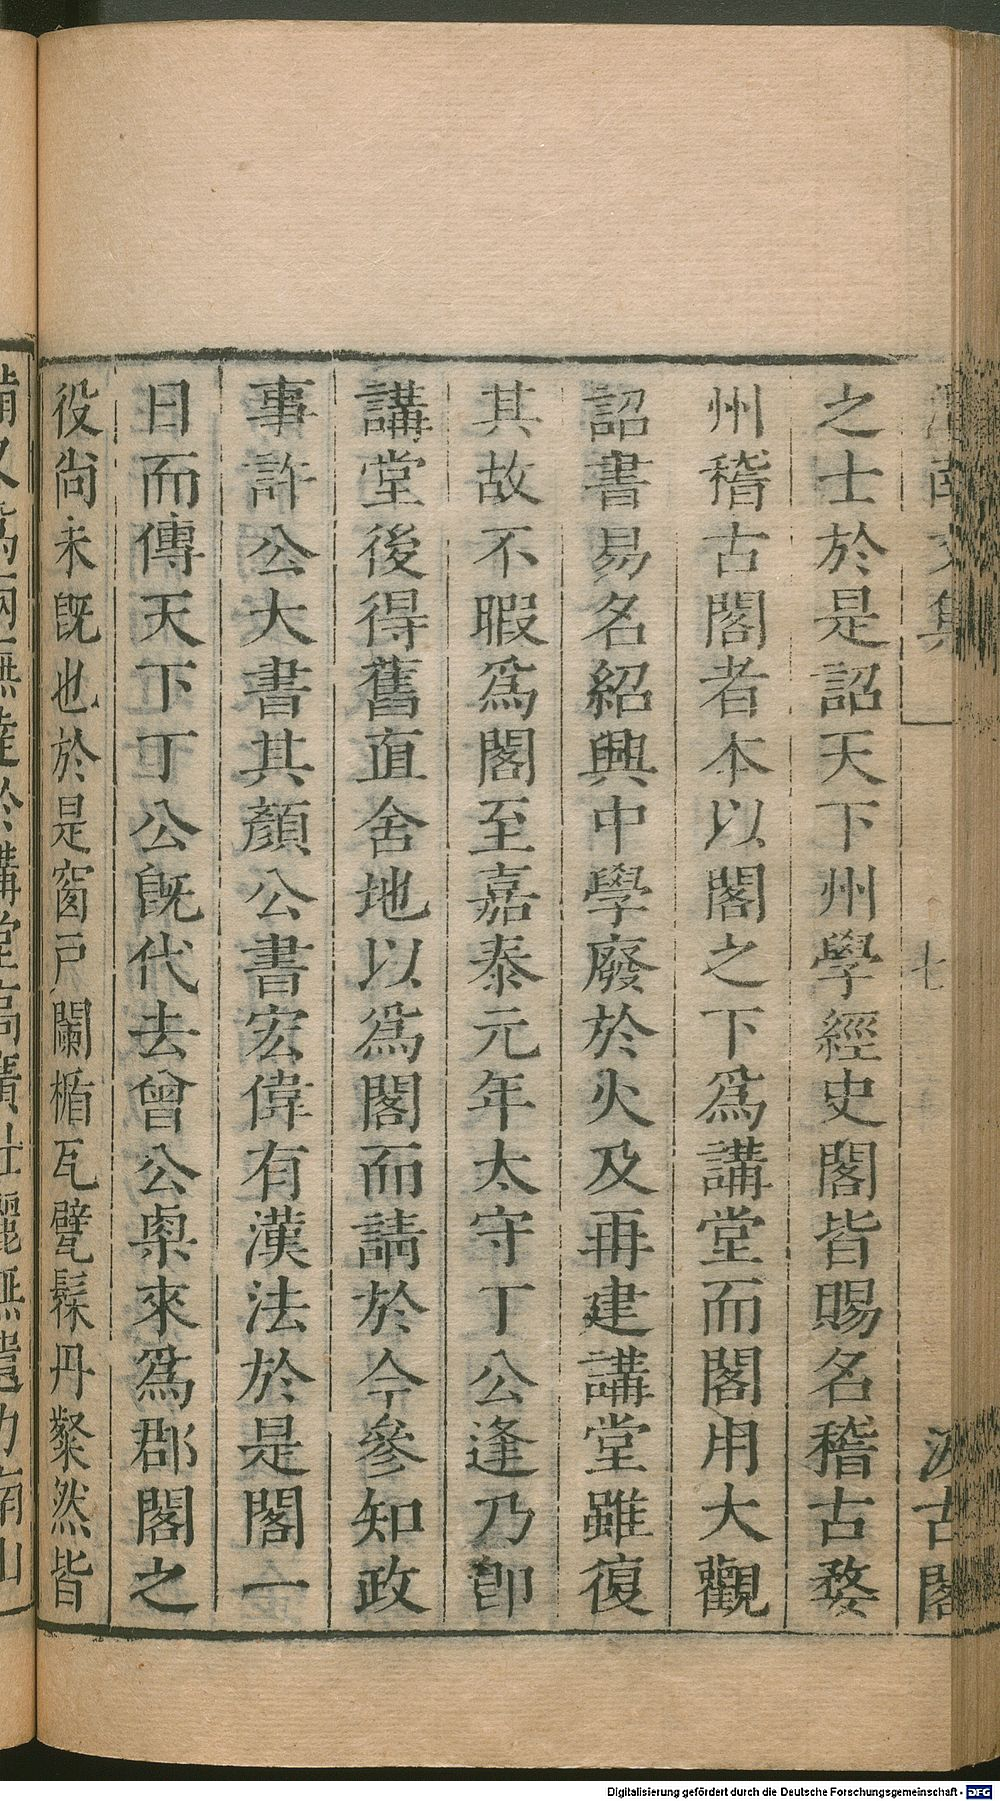 之士於是詔天下州學經史閣皆賜名稽古婺
州稽古閣者本以閣之下為講堂而閣用大觀
詔書易名紹興中學廢於火及再建講堂雖復
其故不暇為閣至嘉泰元年太守丁公逢乃卽
講堂後得舊直舍地以為閣而請於今參知政
事許公大書其顏公書宏偉有漢法於是閣一
日而傳天下丁公旣代去曾公㮚來為郡閣之
役尙未旣也於是窗戸闌楯瓦甓髹丹粲然皆
文集
七
汲古閣
Digitalisierung gefördert durch die Deutsche Forschungsgemeinschaft - DFG